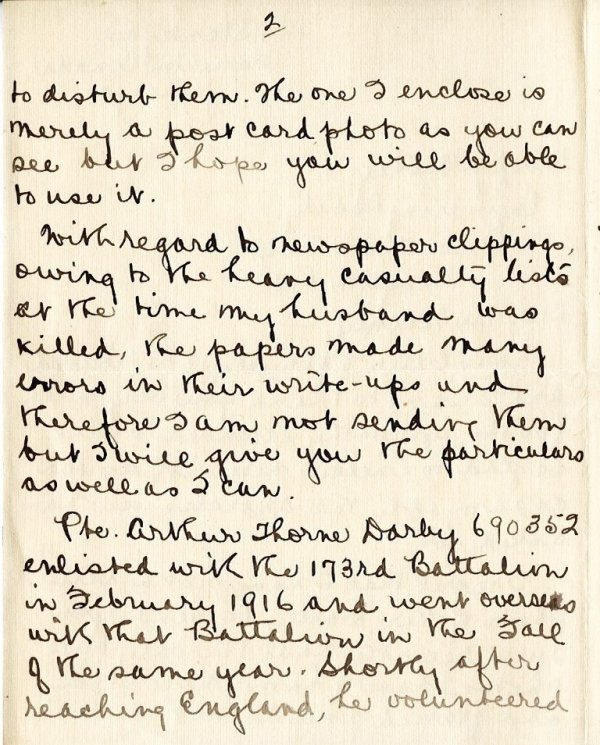 2
to disturb them. The one I enclose is
merely a post card photo as you can
see but I hope you will be able
to use it.
With regard to newspaper clippings,
owing to the heavy casualty lists
at the time my husband was
killed, the papers made many
errors in their write-ups and
therefore I am not sending them
but I will give you the particulars
as well as I can.
Pte. Arthur Thorne Darby 690352
enlisted with the 173rd Battalion
in February 1916 and went overseas
with that Battalion in the Fall
of the same year. Shortly after
reaching England, he volunteered